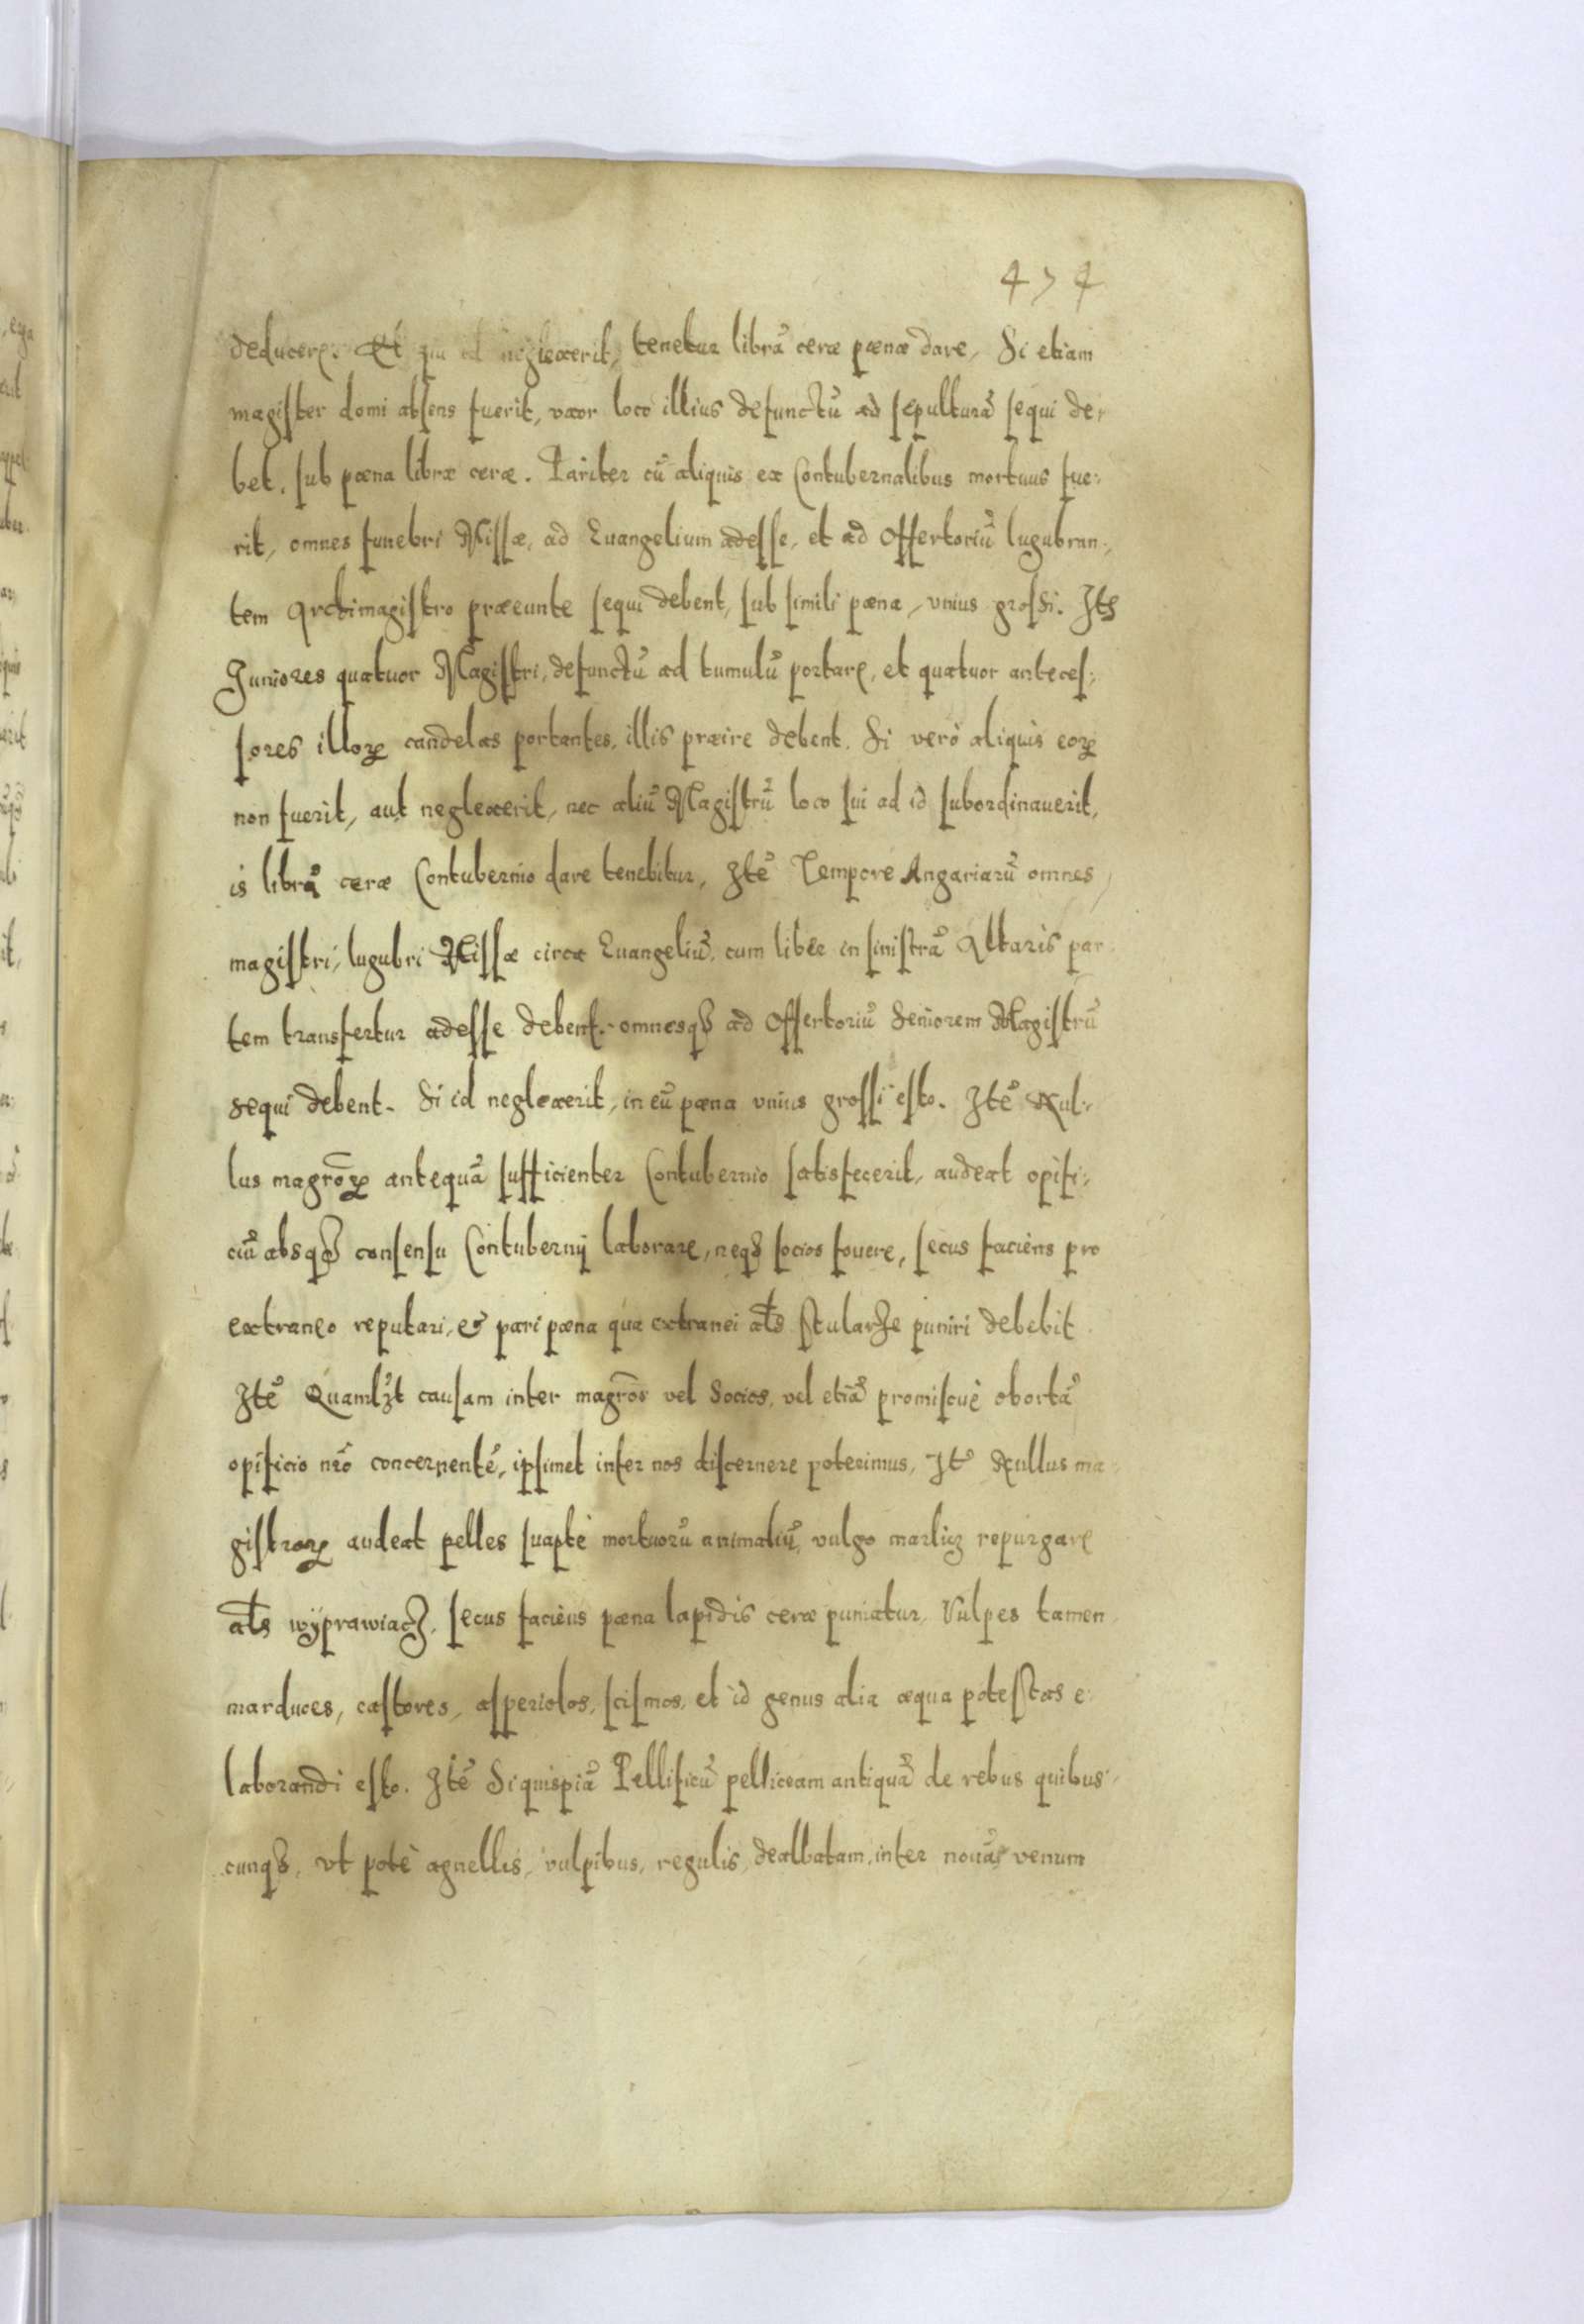 474
deducere. Et qui id neglexerit, tenetur librā ceræ pœnæ dare, Si etiam
magister domi absens fuerit, vxor loco illius defunctū ad sepulturā sequi de-
bet, sub pœna libræ ceræ. Pariter cū aliquis ex Contubernalibus mortuus fue-
rit, omnes funebri Missæ, ad Euangelium adesse, et ad Offertoriū lugubran-
tem Archimagistro præeunte sequi debent, sub simili pœna, vnius grossi. Itē
Juniores quatuor Magistri, defunctū ad tumulū portare, et quatuor anteces-
sores illoꝝ candelas portantes, illis præire debent. Si verò aliquis eoꝝ
non fuerit, aut neglexerit, nec aliū Magistrū loco sui ad id subordinauerit,
is librā ceræ Contubernio dare tenebitur, Itē Tempore Angariarū omnes
magistri, lugubri Missæ circa Euangeliū, cum liber in sinistrā Altaris par-
tem transfertur adesse debent. omnesqꝫ ad Offertoriū Seniorem Magistrū
sequi debent. Si id neglexerit, in eū pœna vnius grossi esto. Itē Nul-
lus magr̄oꝝ antequā sufficienter Contubernio satisfecerit, audeat opifi-
ciū absqꝫ consensu Contubernij laborare, neqꝫ socios fouere, secus faciens pro
extraneo reputari, & pari pœna qua extranei al̄s sturarze puniri debebit
Itē Quamlꝫt causam inter magr̄os vel Socios, vel etiā promiscuè obortā
opificio nr̄o concernentē, ipsimet inter nos discernere poterimus, Itē Nullus ma-
gistroꝝ audeat pelles suaptè mortuorū animaliū, vulgo marlicz repurgare
al̄s wyprawiacz, secus faciens pœna lapidis ceræ puniatur. Vulpes tamen
marduces, castores, asperiolos, scismos, et id genus alia æqua potestas e-
laborandi esto. Itē Si quispiā Pellificū pelliceam antiquā de rebus quibus-
cunqꝫ, vt potè agnellis, vulpibus, regulis, dealbatam, inter nouas venum